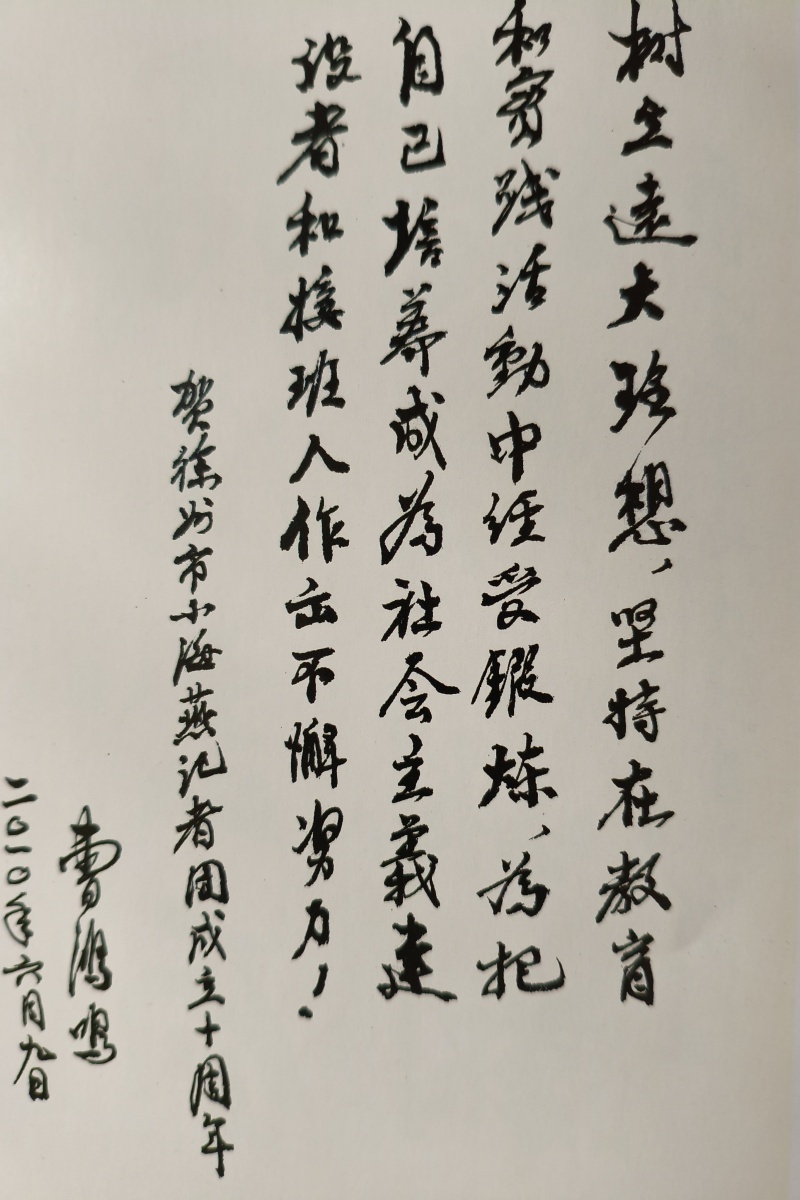 树立遠大理想，坚持在教育
和实践活動中经受鍛炼，为把
自己培养成为社会主義建
设者和接班人作出不懈努力！
贺徐州市小海燕记者团成立十周年
曹鸿鸣
二〇一〇年六月九日